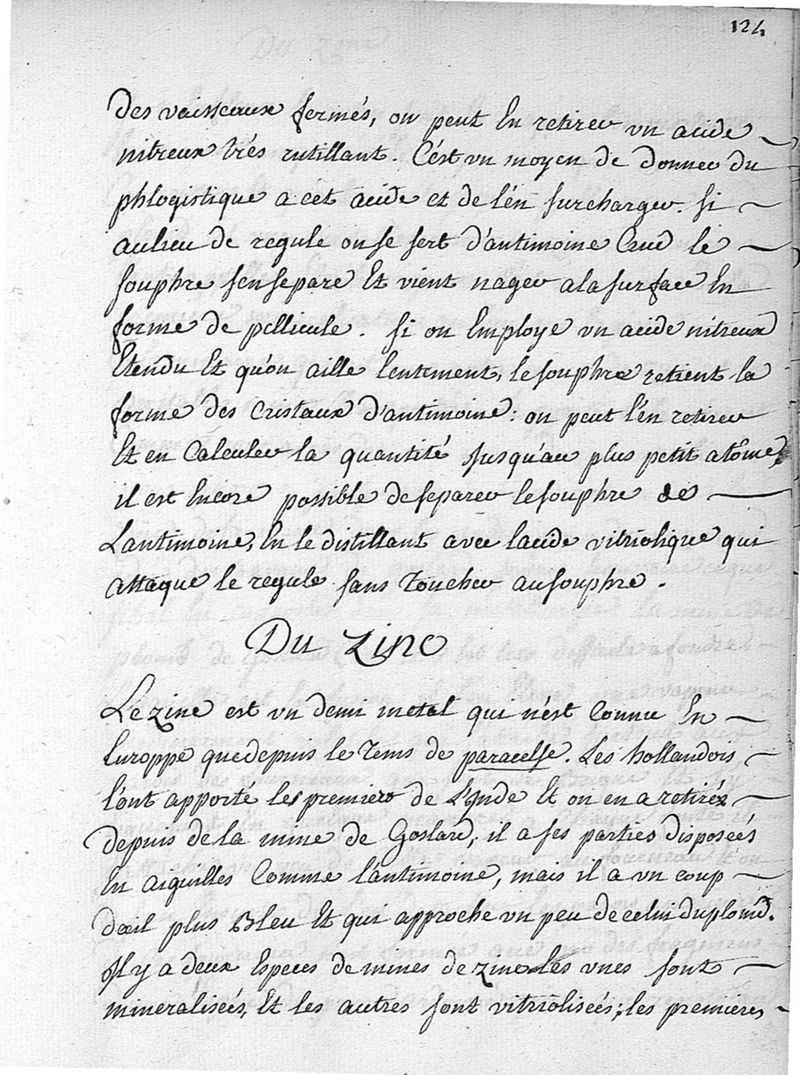 124
des vaisseaux fermés, on peut En retirer un acide
nitreux trés rutillant. C'est un moyen de donner du
phlogistique a cet acide et de l'en surcharger. si
aulieu de regule on se sert d'antimoine Crud le
souphre s'en separe Et vient nager a la surface En
forme de pellicule. si on Employe un acide nitreux
Etendu Et qu'on aille lentement, le souphre retient la
forme des cristaux d'antimoine: on peut l'en retirer
Et en Calculer la quantité jusqu'au plus petit atôme,
il est Encore possible de separer le souphre de
L'antimoine, En le distillant avec l'acide vitriolique qui
attaque le regule sans toucher au souphre.
Du Zinc
Le zinc est un demi metal qui n'est Connu En
Europpe que depuis le tems de paracelse. Les hollandois
l'ont apporté les premiers de L'ynde Et on en a retiréz
depuis de la mine de Goslard, il a ses parties disposées
En aiguilles Comme l'antimoine, mais il a un coup
d'œil plus Bleu Et qui approche un peu de celui du plomb.
Il y a deux Especes de mines de zinc les unes sont
mineralisées, Et les autres sont vitriolisées; les premières